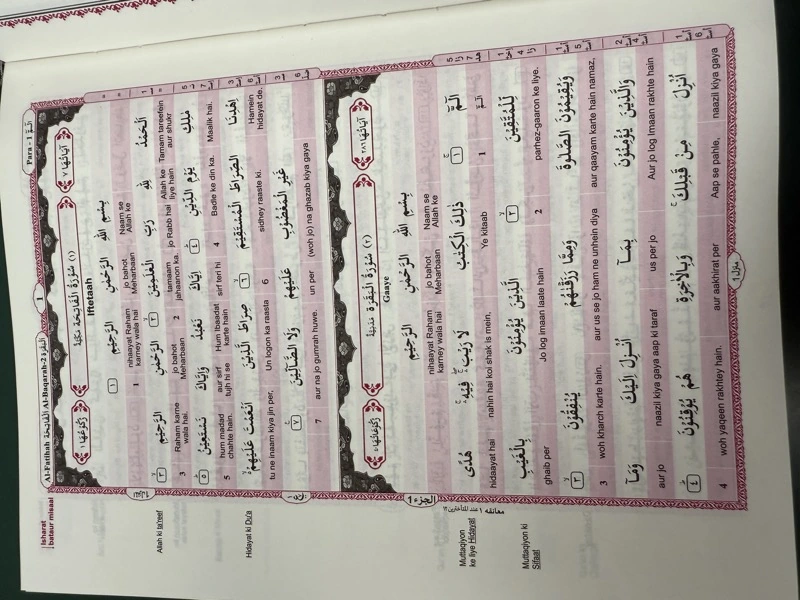 Isharat
bataur misaal
Al-Fatihah الفاتحة Al-Baqarah-2 البقرة 1 Para - 1
اٰيَاتُهَا ٧ (١) سُوْرَةُ الْفَاتِحَةِ مَكِّيَّةٌ رُكُوْعُهَا ١
Iftetaah
بِسْمِ اللّٰهِ الرَّحْمٰنِ الرَّحِيْمِ ١
Naam se Allah ke jo bahot Meharbaan nihaayat Raham karney wala hai 1
اَلْحَمْدُ لِلّٰهِ رَبِّ الْعٰلَمِيْنَ ٢ الرَّحْمٰنِ الرَّحِيْمِ ٣
Tamam tareefein aur shukr Allah ke liye hain jo Rabb hai tamaam jahaanon ka. 2 jo bahot Meharbaan Raham karne wala hai. 3
Allah ki ta'reef
مٰلِكِ يَوْمِ الدِّيْنِ ٤ اِيَّاكَ نَعْبُدُ وَاِيَّاكَ نَسْتَعِيْنُ ٥
Maalik hai. Badle ke din ka. 4 sirf teri hi Hum Ibaadat karte hain. aur sirf tujh hi se hum madad chahte hain. 5
اِهْدِنَا الصِّرَاطَ الْمُسْتَقِيْمَ ٦ صِرَاطَ الَّذِيْنَ اَنْعَمْتَ عَلَيْهِمْ
Hamein hidayat de. sidhey raaste ki. 6 Un logon ka raasta tu ne inaam kiya jin per,
Hidayat ki Du'a
غَيْرِ الْمَغْضُوْبِ عَلَيْهِمْ وَلَا الضَّآلِّيْنَ ٧
(woh jo) na ghazab kiya gaya un per aur na jo gumrah huwe. 7
اٰيَاتُهَا ٢٨٦ (٢) سُوْرَةُ الْبَقَرَةِ مَدَنِيَّةٌ رُكُوْعَاتُهَا ٤٠
Gaaye
بِسْمِ اللّٰهِ الرَّحْمٰنِ الرَّحِيْمِ
Naam se Allah ke jo bahot Meharbaan nihaayat Raham karney wala hai
الٓمّٓ ١ ذٰلِكَ الْكِتٰبُ لَا رَيْبَ فِيْهِ هُدًى
1 Ye kitaab nahin hai koi shak is mein, hidaayat hai
Muttaqiyon
ke liye Hidayat
لِّلْمُتَّقِيْنَ ٢ الَّذِيْنَ يُؤْمِنُوْنَ بِالْغَيْبِ
parhez-gaaron ke liye. 2 Jo log imaan laate hain ghaib per
Muttaqiyon ki
Sifaat
وَيُقِيْمُوْنَ الصَّلٰوةَ وَمِمَّا رَزَقْنٰهُمْ يُنْفِقُوْنَ ٣
aur qaayam karte hain namaz, aur us se jo ham ne unhein diya woh kharch karte hain. 3
وَالَّذِيْنَ يُؤْمِنُوْنَ بِمَآ اُنْزِلَ اِلَيْكَ وَمَآ
Aur jo log Imaan rakhte hain us per jo naazil kiya gaya aap ki taraf aur jo
اُنْزِلَ مِنْ قَبْلِكَ وَبِالْاٰخِرَةِ هُمْ يُوْقِنُوْنَ ٤
naazil kiya gaya Aap se pahle, aur aakhirat per woh yaqeen rakhtey hain. 4
منزل ١